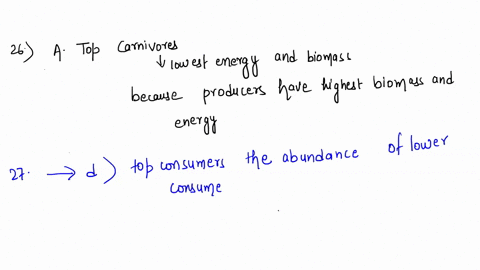 26.) A. Top Carnivores
↓ lowest energy and biomass
because producers have highest biomass and
energy
27. → d) top consumers the abundance of lower
consume